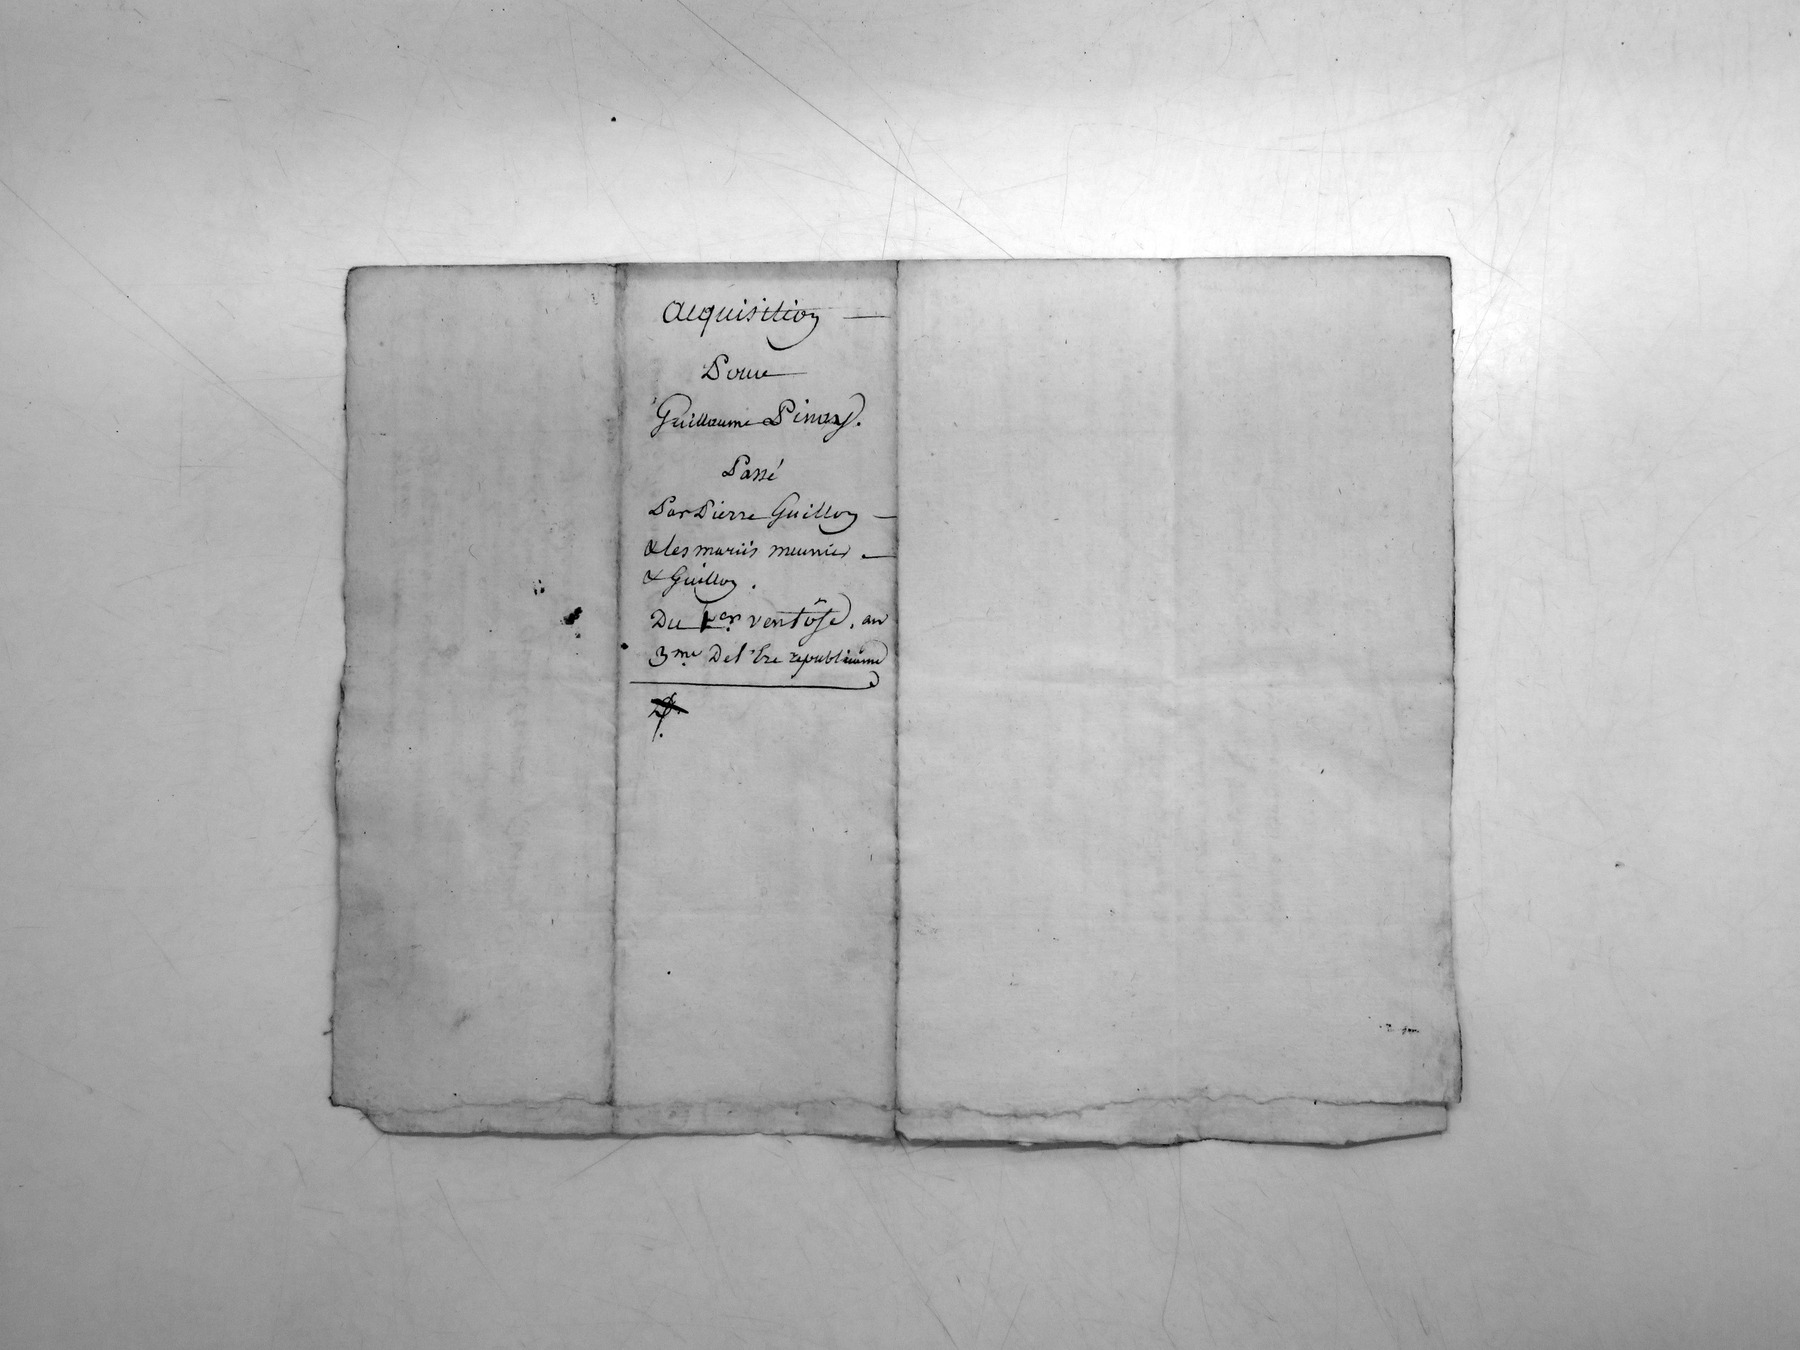 acquisition
Pour
Guillaume Pinay.
Passé
Par Pierre Guillon
& les mariés meunier
& Guillon.
Du 1er ventôse, an
3me De l'Ere republicaine